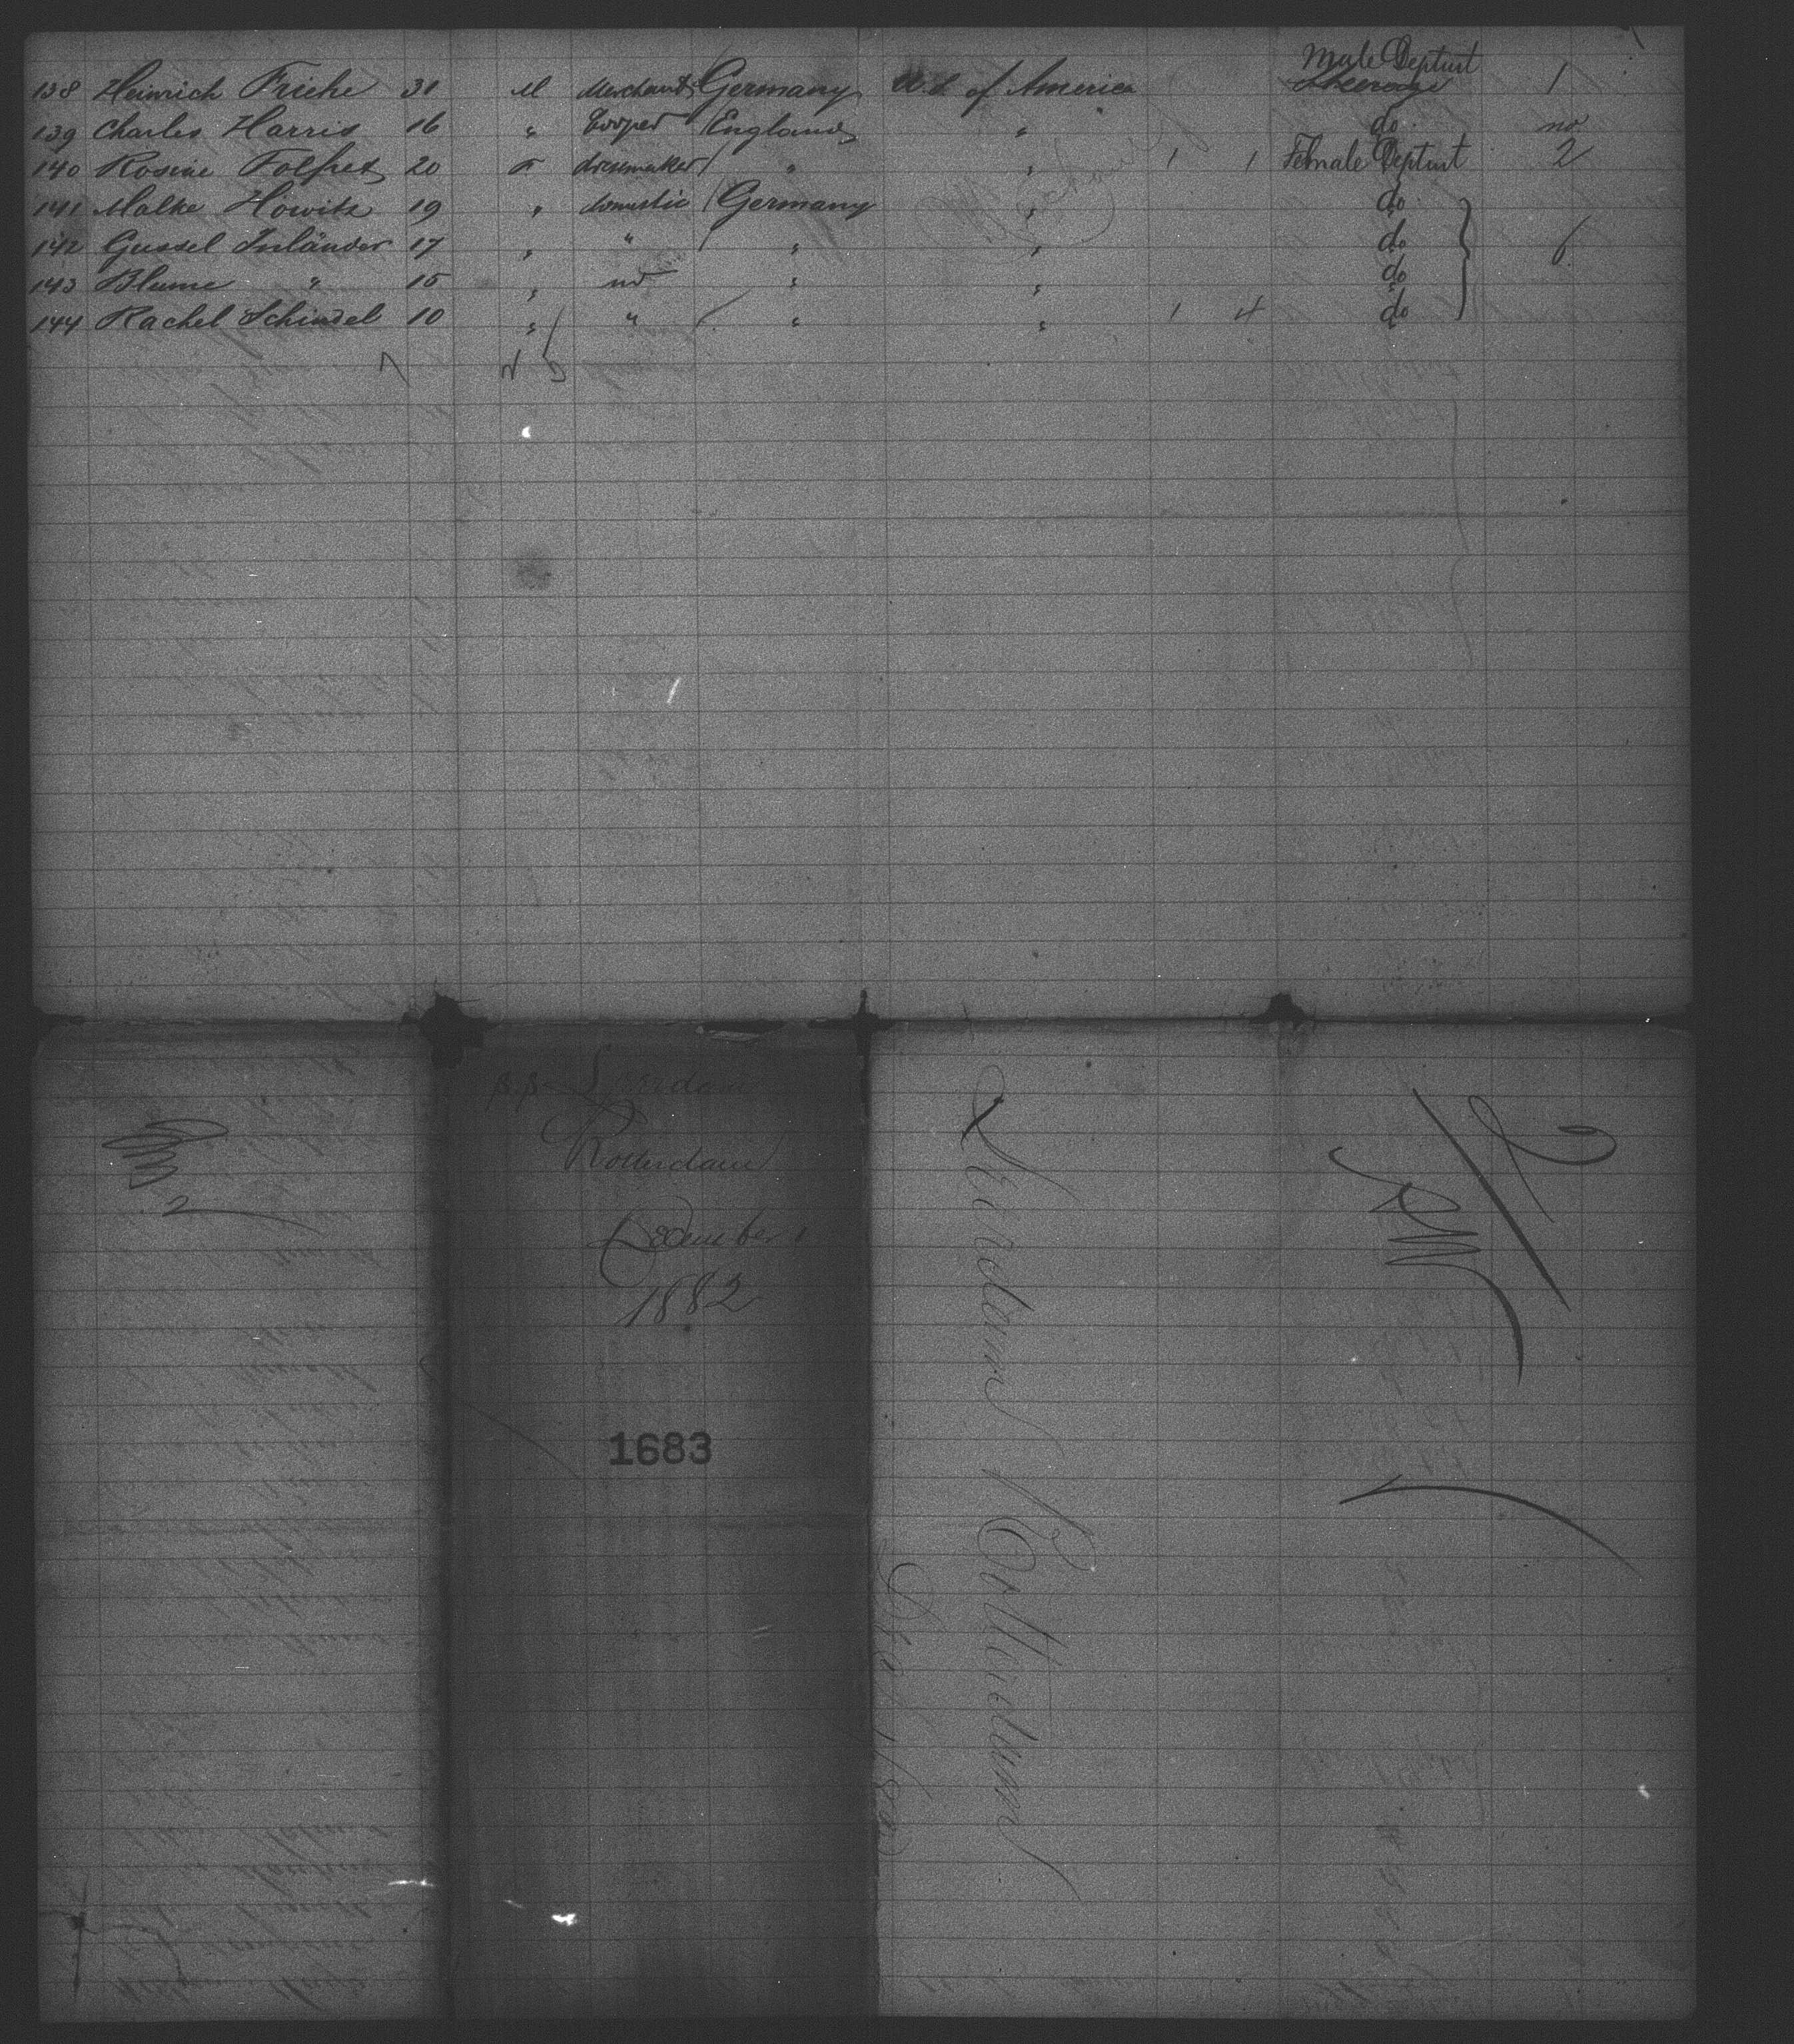 Male Deptmt
138 Heinrich Fricke 31 M Merchant Germany U.S. of America Steerage 1
139 Charles Harris 16 " Cooper England " do no
140 Rosine Folfret 20 F dressmaker " " 1 1 Female Deptmt 2
141 Malke Howitz 19 " domestic Germany " do
142 Gussel Inländer 17 " " " " do 6
143 Blume " 15 " no " " do
144 Rachel Schindel 10 " " " " 1 4 do
7
s.s. Leerdam
Rotterdam
December 1
1882
1683
Leerdam Rotterdam
Dec 1/82
2